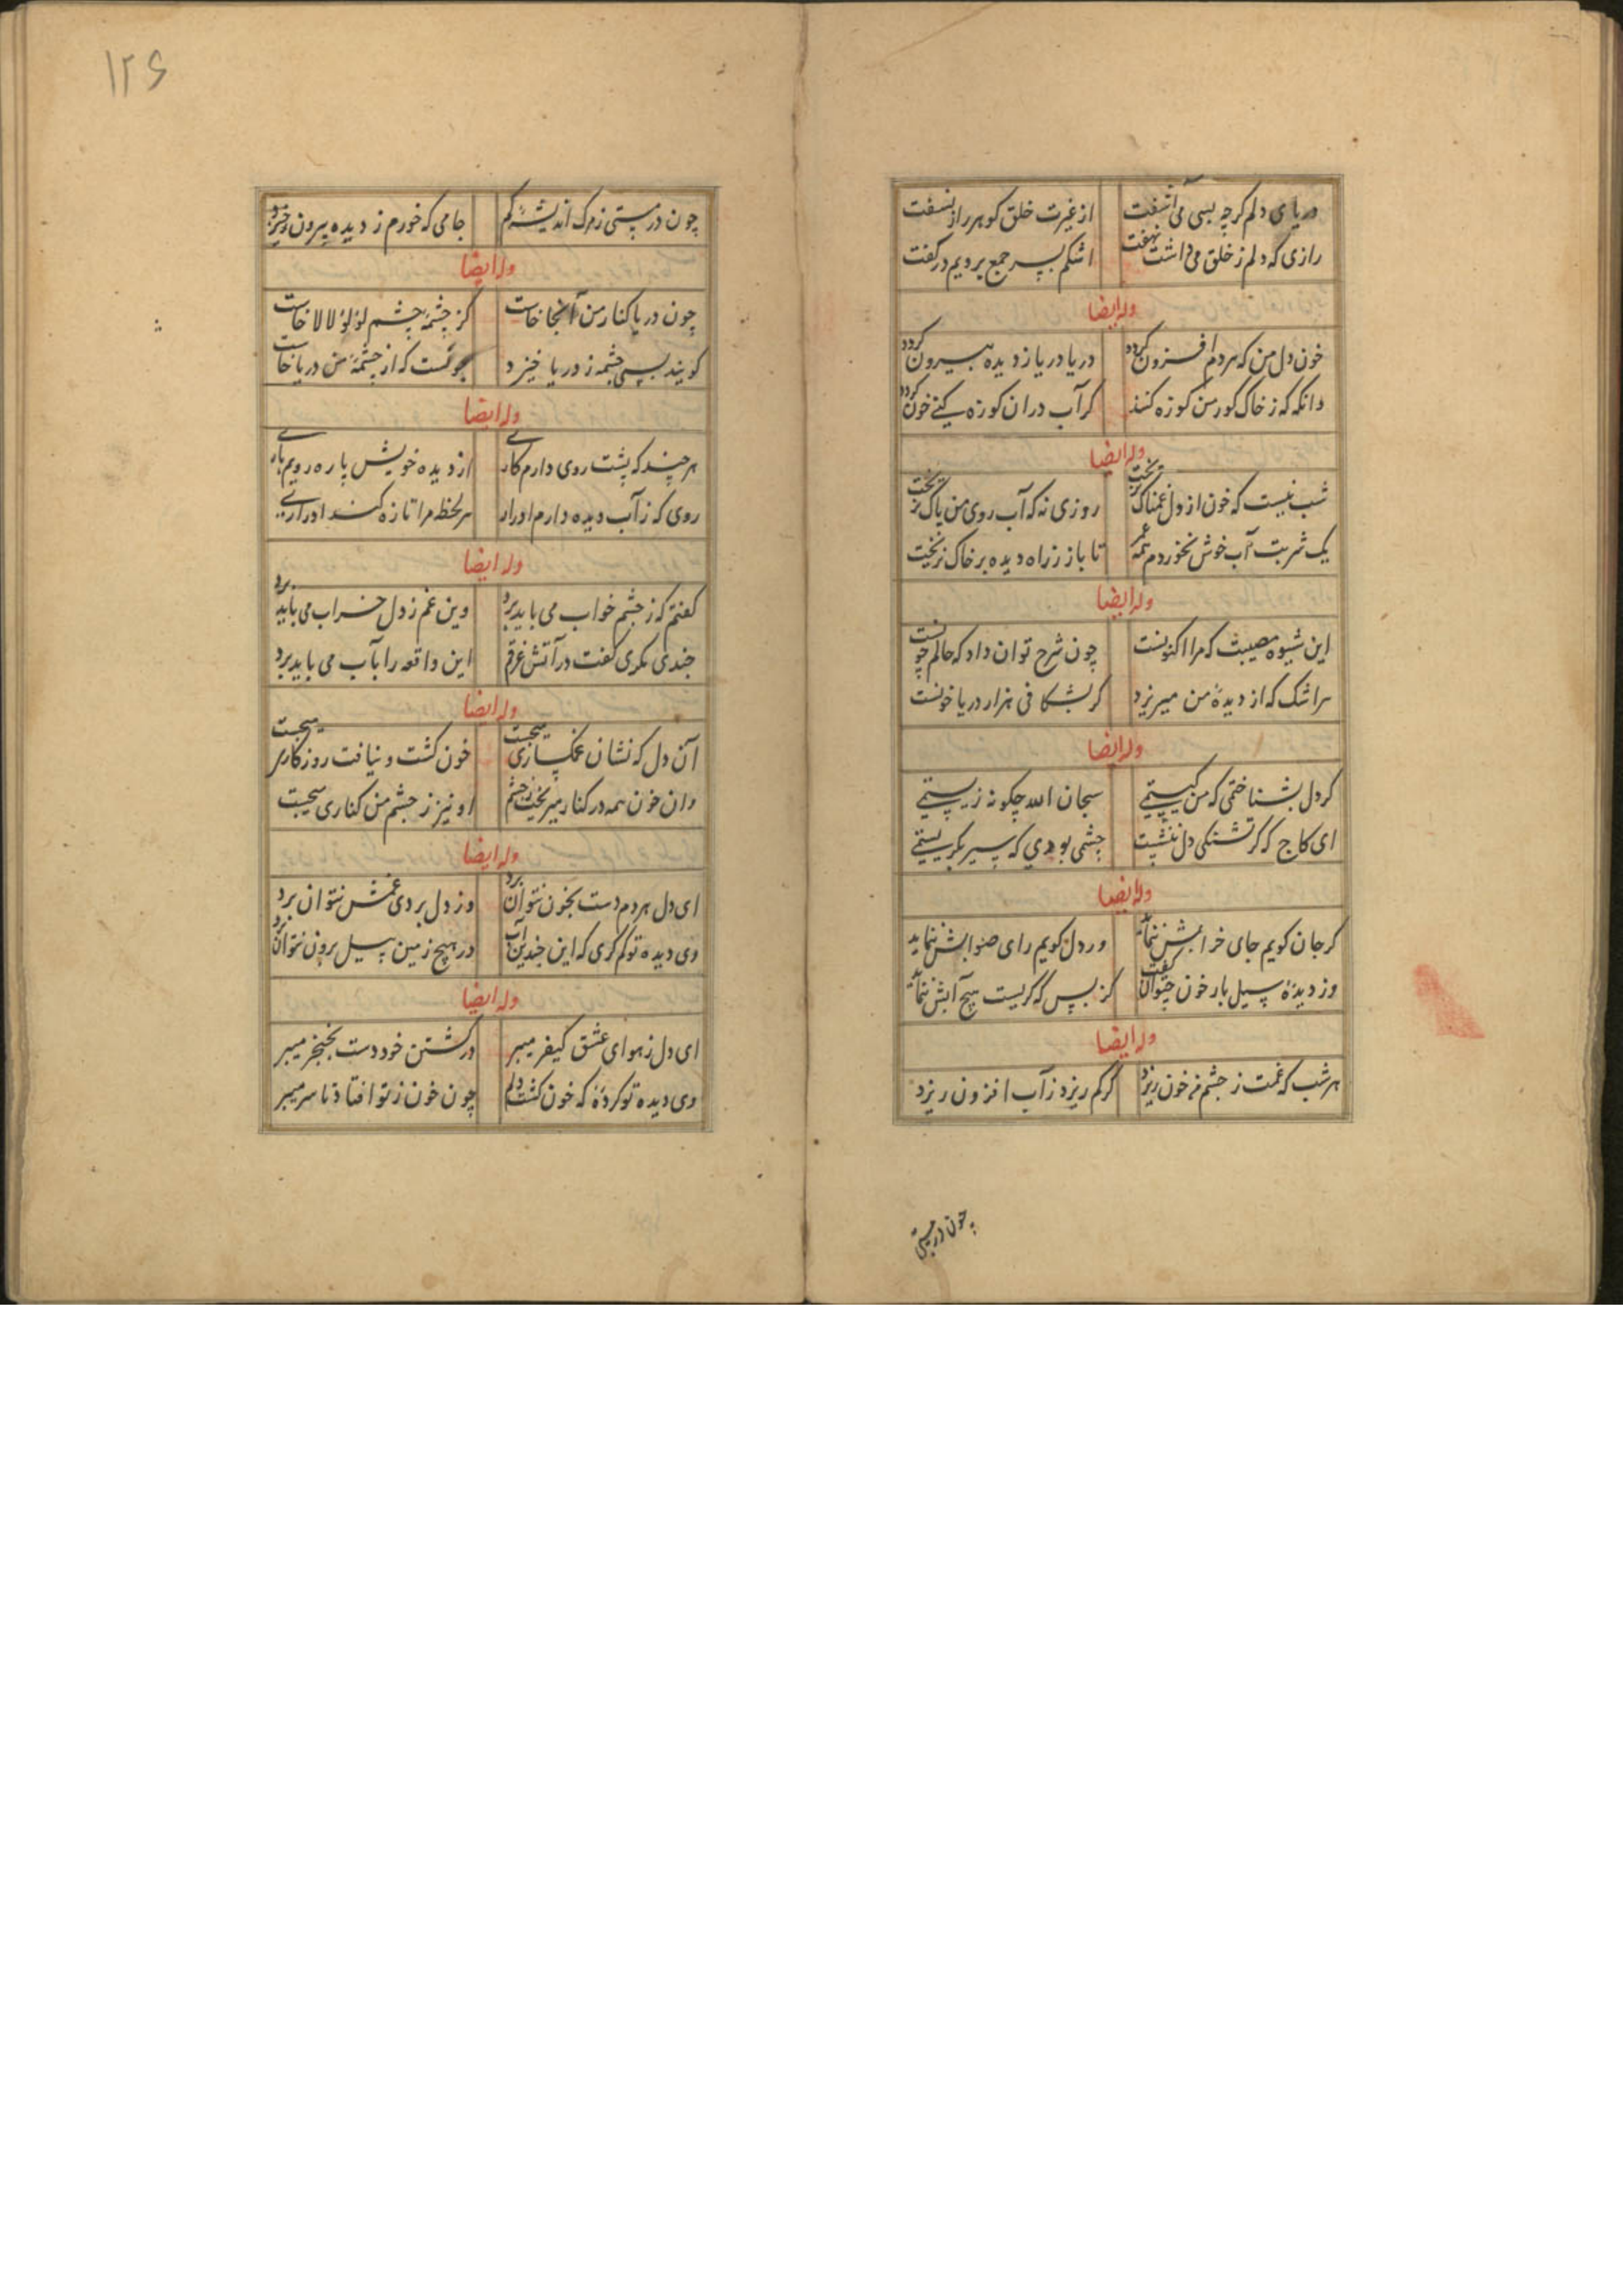 دریای دلم کرچه بسی می آشفت از غیرت خلق کوهر راز نسفت
رازی که دلم ز خلق می داشت نهفت اشکم بسر جمع برویم در کفت
وله ایضا
خون دل من که هر دم افزون کردد دریا دریا ز دیده بیرون کردد
وانکه که ز خاک کور من کوزه کنند کر آب دران کوزه کنی خون کردد
وله ایضا
شب نیست که خون از دل غمناک نریخت روزی نه که آب روی من پاک نریخت
یک شربت آب خوش نخوردم همه عمر تا باز ز راه دیده بر خاک نریخت
وله ایضا
این شیوه مصیبت که مرا اکنونست چون شرح توان داد که حالم چونست
هر اشک که از دیدهٔ من میریزد کر بشکافی هزار دریا خونست
وله ایضا
کر دل بشناختمی که من کیستمی سبحان الله چکونه زیستمی
ای کاج که کر تشنکی دل ننشست چشمی بودی که سیر بکریستمی
وله ایضا
کر جان کویم جای خرابش ننماید ور دل کویم رای صوابش ننماید
وز دیدهٔ سیل بار خون چتوان کفت کز بس که کریست هیچ آبش ننماید
وله ایضا
هر شب که غمت ز چشم من خون ریزد کر کم ریزد ز آب افزون ریزد
چون در مستی
۱۲۶
چون در مستی ز مرک اندیشه کنم جامی که خورم ز دیده بیرون ریزد
وله ایضا
چون دریا کنار من آنجا خاست کز چشمهٔ چشم لؤلؤ لالا خاست
کویند بسی چشمه ز دریا خیزد چونست که از چشمهٔ من دریا خاست
وله ایضا
هر چند که پشت روی دارم کاری از دیده خویش پاره رویم باری
روی که ز آب دیده دارم ادرار هر لحظه مرا تازه کند ادراری
وله ایضا
کفتم که ز چشم خواب می باید برد وین غم ز دل خراب می باید برد
چندی بکری کفت در آتش غرقم این واقعه را بآب می باید برد
وله ایضا
آن دل که نشان غمکساری میجست خون کشت و نیافت روزکاری میجست
وان خون همه در کنار میریخت ز چشم او نیز ز چشم من کناری میجست
وله ایضا
ای دل هر دم دست بخون نتوان برد وز دل بردی غمش نتوان برد
وی دیده تو کم کری که این چندین آب در هیچ زمین بسیل برون نتوان برد
وله ایضا
ای دل ز هوای عشق کیفر میبر در کشتن خود دست بخنجر میبر
وی دیده تو کردهٔ که خون کشت دلم چون خون ز تو افتاد تا سر میبر